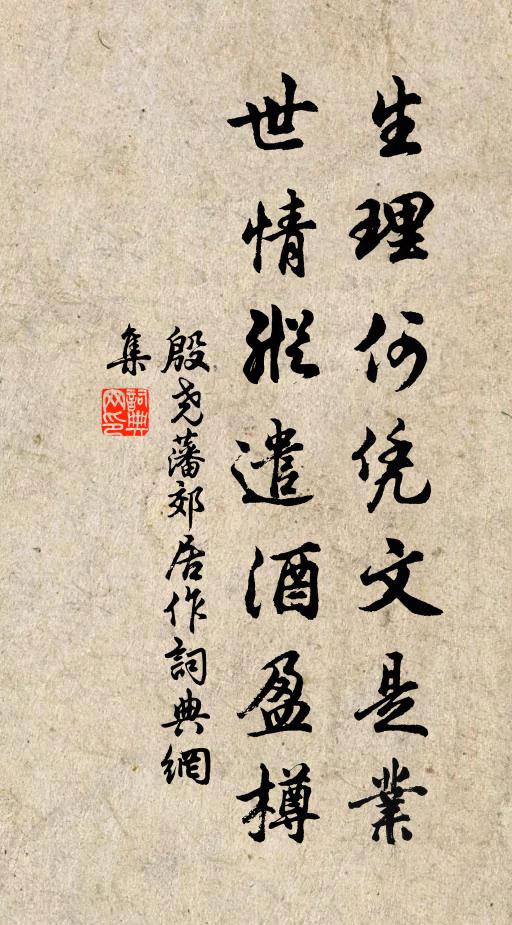 生理何凭文是業
世情縱遣酒盈樽
殷堯藩郊居作詞典網
集
詞典
网印